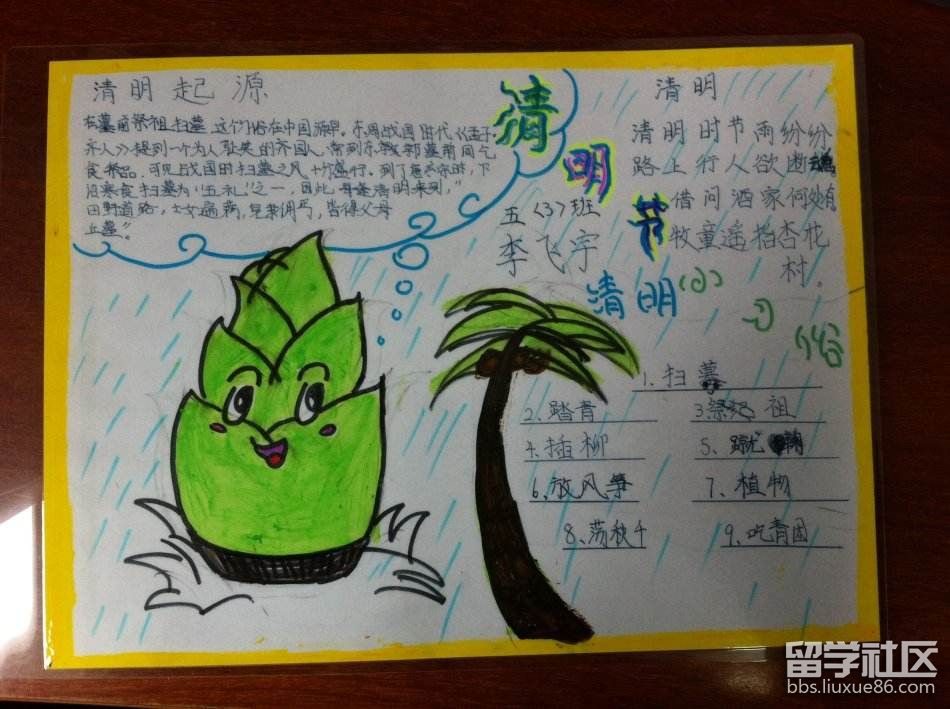 清明起源
在墓前祭祖扫墓 这个习俗在中国源早。东周战国时代《孟子·
齐人》提到一个为人耻笑的齐国人，常到东郭墓前同乞
食祭品，可见战国时扫墓之风十分盛行。到了唐
旧寒食扫墓为"五礼"之一，因此 清明来到，"
田野道路，士女遍满，皆得父母
丘墓"。
清
明
节
五〈3〉班
李飞宇
清明
清明时节雨纷纷
路上行人欲断魂
借问酒家何处有
牧童遥指杏花
村。
清明(小)
习
俗
1.扫墓
2.踏青
3.祭祀祖
4.插柳
5、蹴鞠
6、放风筝
7、植物
8、荡秋千
9、吃青团
留学社区
bbs.liuxue86.com